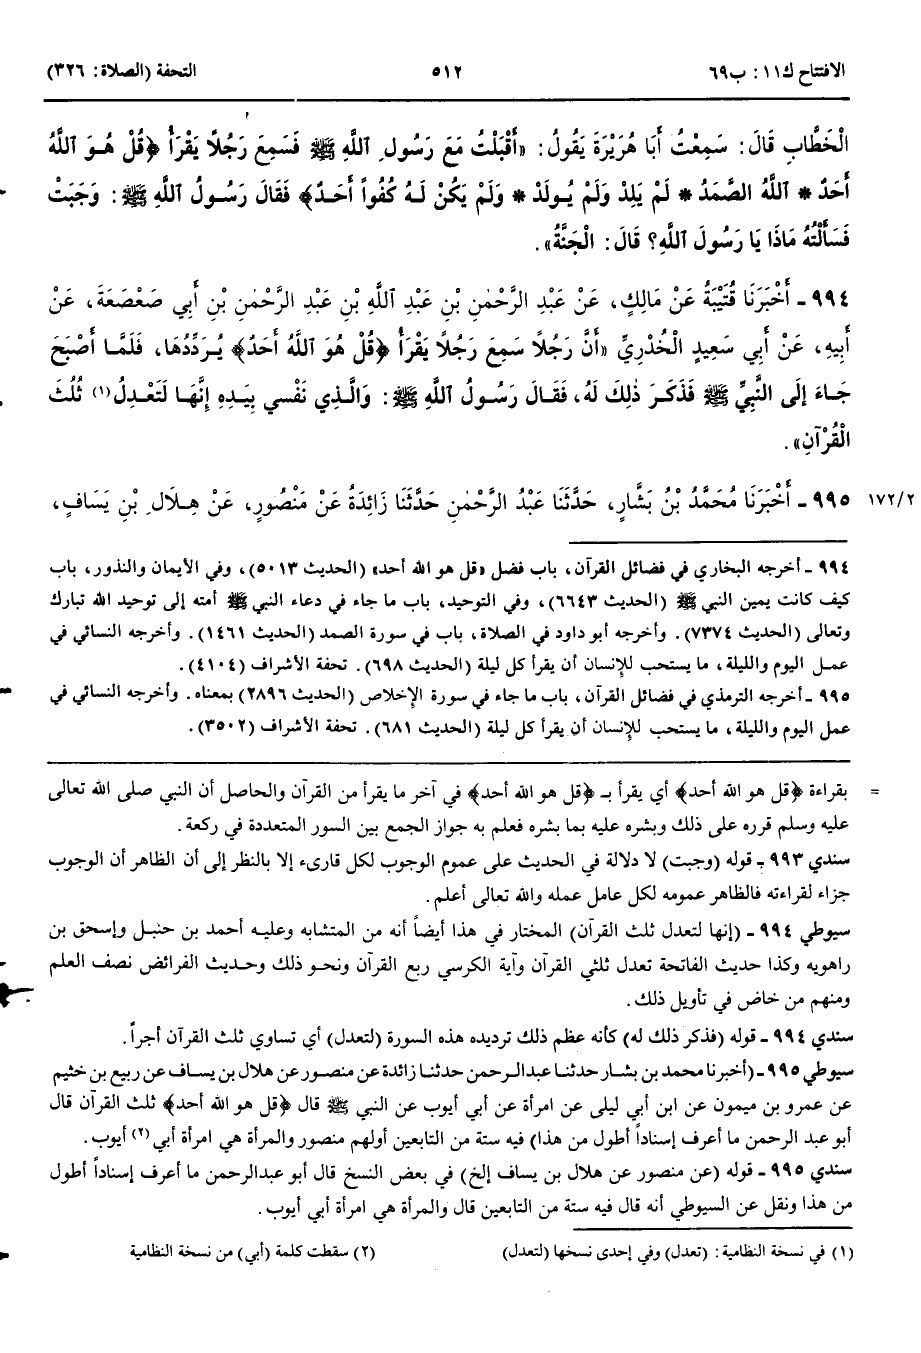 الافتتاح ك١١: ب٦٩
٥١٢
التحفة (الصلاة: ٣٢٦)
الْخَطَّابِ قَالَ: سَمِعْتُ أَبَا هُرَيْرَةَ يَقُولُ: «أَقْبَلْتُ مَعَ رَسُولِ اللَّهِ ﷺ فَسَمِعَ رَجُلاً يَقْرَأُ ﴿قُلْ هُوَ اللَّهُ
أَحَدٌ * اللَّهُ الصَّمَدُ * لَمْ يَلِدْ وَلَمْ يُولَدْ * وَلَمْ يَكُنْ لَهُ كُفُواً أَحَدٌ﴾ فَقَالَ رَسُولُ اللَّهِ ﷺ: وَجَبَتْ
فَسَأَلْتُهُ مَاذَا يَا رَسُولَ اللَّهِ؟ قَالَ: الْجَنَّةُ».
٩٩٤ - أَخْبَرَنَا قُتَيْبَةُ عَنْ مَالِكٍ، عَنْ عَبْدِ الرَّحْمٰنِ بْنِ عَبْدِ اللَّهِ بْنِ عَبْدِ الرَّحْمٰنِ بْنِ أَبِي صَعْصَعَةَ، عَنْ
أَبِيهِ، عَنْ أَبِي سَعِيدٍ الْخُدْرِيِّ «أَنَّ رَجُلاً سَمِعَ رَجُلاً يَقْرَأُ ﴿قُلْ هُوَ اللَّهُ أَحَدٌ﴾ يُرَدِّدُهَا، فَلَمَّا أَصْبَحَ
جَاءَ إِلَى النَّبِيِّ ﷺ فَذَكَرَ ذٰلِكَ لَهُ، فَقَالَ رَسُولُ اللَّهِ ﷺ: وَالَّذِي نَفْسِي بِيَدِهِ إِنَّهَا لَتَعْدِلُ(١) ثُلُثَ
الْقُرْآنِ».
١٧٢/٢ ٩٩٥ - أَخْبَرَنَا مُحَمَّدُ بْنُ بَشَّارٍ، حَدَّثَنَا عَبْدُ الرَّحْمٰنِ حَدَّثَنَا زَائِدَةُ عَنْ مَنْصُورٍ، عَنْ هِلَالِ بْنِ يَسَافٍ،
٩٩٤ - أخرجه البخاري في فضائل القرآن، باب فضل «قل هو الله أحد» (الحديث ٥٠١٣)، وفي الأيمان والنذور، باب
كيف كانت يمين النبي ﷺ (الحديث ٦٦٤٣)، وفي التوحيد، باب ما جاء في دعاء النبي ﷺ أمته إلى توحيد الله تبارك
وتعالى (الحديث ٧٣٧٤). وأخرجه أبو داود في الصلاة، باب في سورة الصمد (الحديث ١٤٦١). وأخرجه النسائي في
عمل اليوم والليلة، ما يستحب للإنسان أن يقرأ كل ليلة (الحديث ٦٩٨). تحفة الأشراف (٤١٠٤).
٩٩٥ - أخرجه الترمذي في فضائل القرآن، باب ما جاء في سورة الإخلاص (الحديث ٢٨٩٦) بمعناه. وأخرجه النسائي في
عمل اليوم والليلة، ما يستحب للإنسان أن يقرأ كل ليلة (الحديث ٦٨١). تحفة الأشراف (٣٥٠٢).
= بقراءة ﴿قل هو الله أحد﴾ أي يقرأ بـ ﴿قل هو الله أحد﴾ في آخر ما يقرأ من القرآن والحاصل أن النبي صلى الله تعالى
عليه وسلم قرره على ذلك وبشره عليه بما بشره فعلم به جواز الجمع بين السور المتعددة في ركعة.
سندي ٩٩٣ - قوله (وجبت) لا دلالة في الحديث على عموم الوجوب لكل قارىء إلا بالنظر إلى أن الظاهر أن الوجوب
جزاء لقراءته فالظاهر عمومه لكل عامل عمله والله تعالى أعلم.
سيوطي ٩٩٤ - (إنها لتعدل ثلث القرآن) المختار في هذا أيضاً أنه من المتشابه وعليه أحمد بن حنبل وإسحق بن
راهويه وكذا حديث الفاتحة تعدل ثلثي القرآن وآية الكرسي ربع القرآن ونحو ذلك وحديث الفرائض نصف العلم
ومنهم من خاض في تأويل ذلك.
سندي ٩٩٤ - قوله (فذكر ذلك له) كأنه عظم ذلك ترديده هذه السورة (لتعدل) أي تساوي ثلث القرآن أجراً.
سيوطي ٩٩٥ - (أخبرنا محمد بن بشار حدثنا عبدالرحمن حدثنا زائدة عن منصور عن هلال بن يساف عن ربيع بن خثيم
عن عمرو بن ميمون عن ابن أبي ليلى عن امرأة عن أبي أيوب عن النبي ﷺ قال ﴿قل هو الله أحد﴾ ثلث القرآن قال
أبو عبد الرحمن ما أعرف إسناداً أطول من هذا) فيه ستة من التابعين أولهم منصور والمرأة هي امرأة أبي(٢) أيوب.
سندي ٩٩٥ - قوله (عن منصور عن هلال بن يساف إلخ) في بعض النسخ قال أبو عبدالرحمن ما أعرف إسناداً أطول
من هذا ونقل عن السيوطي أنه قال فيه ستة من التابعين قال والمرأة هي امرأة أبي أيوب.
(١) في نسخة النظامية: (تعدل) وفي إحدى نسخها (لتعدل)
(٢) سقطت كلمة (أبي) من نسخة النظامية